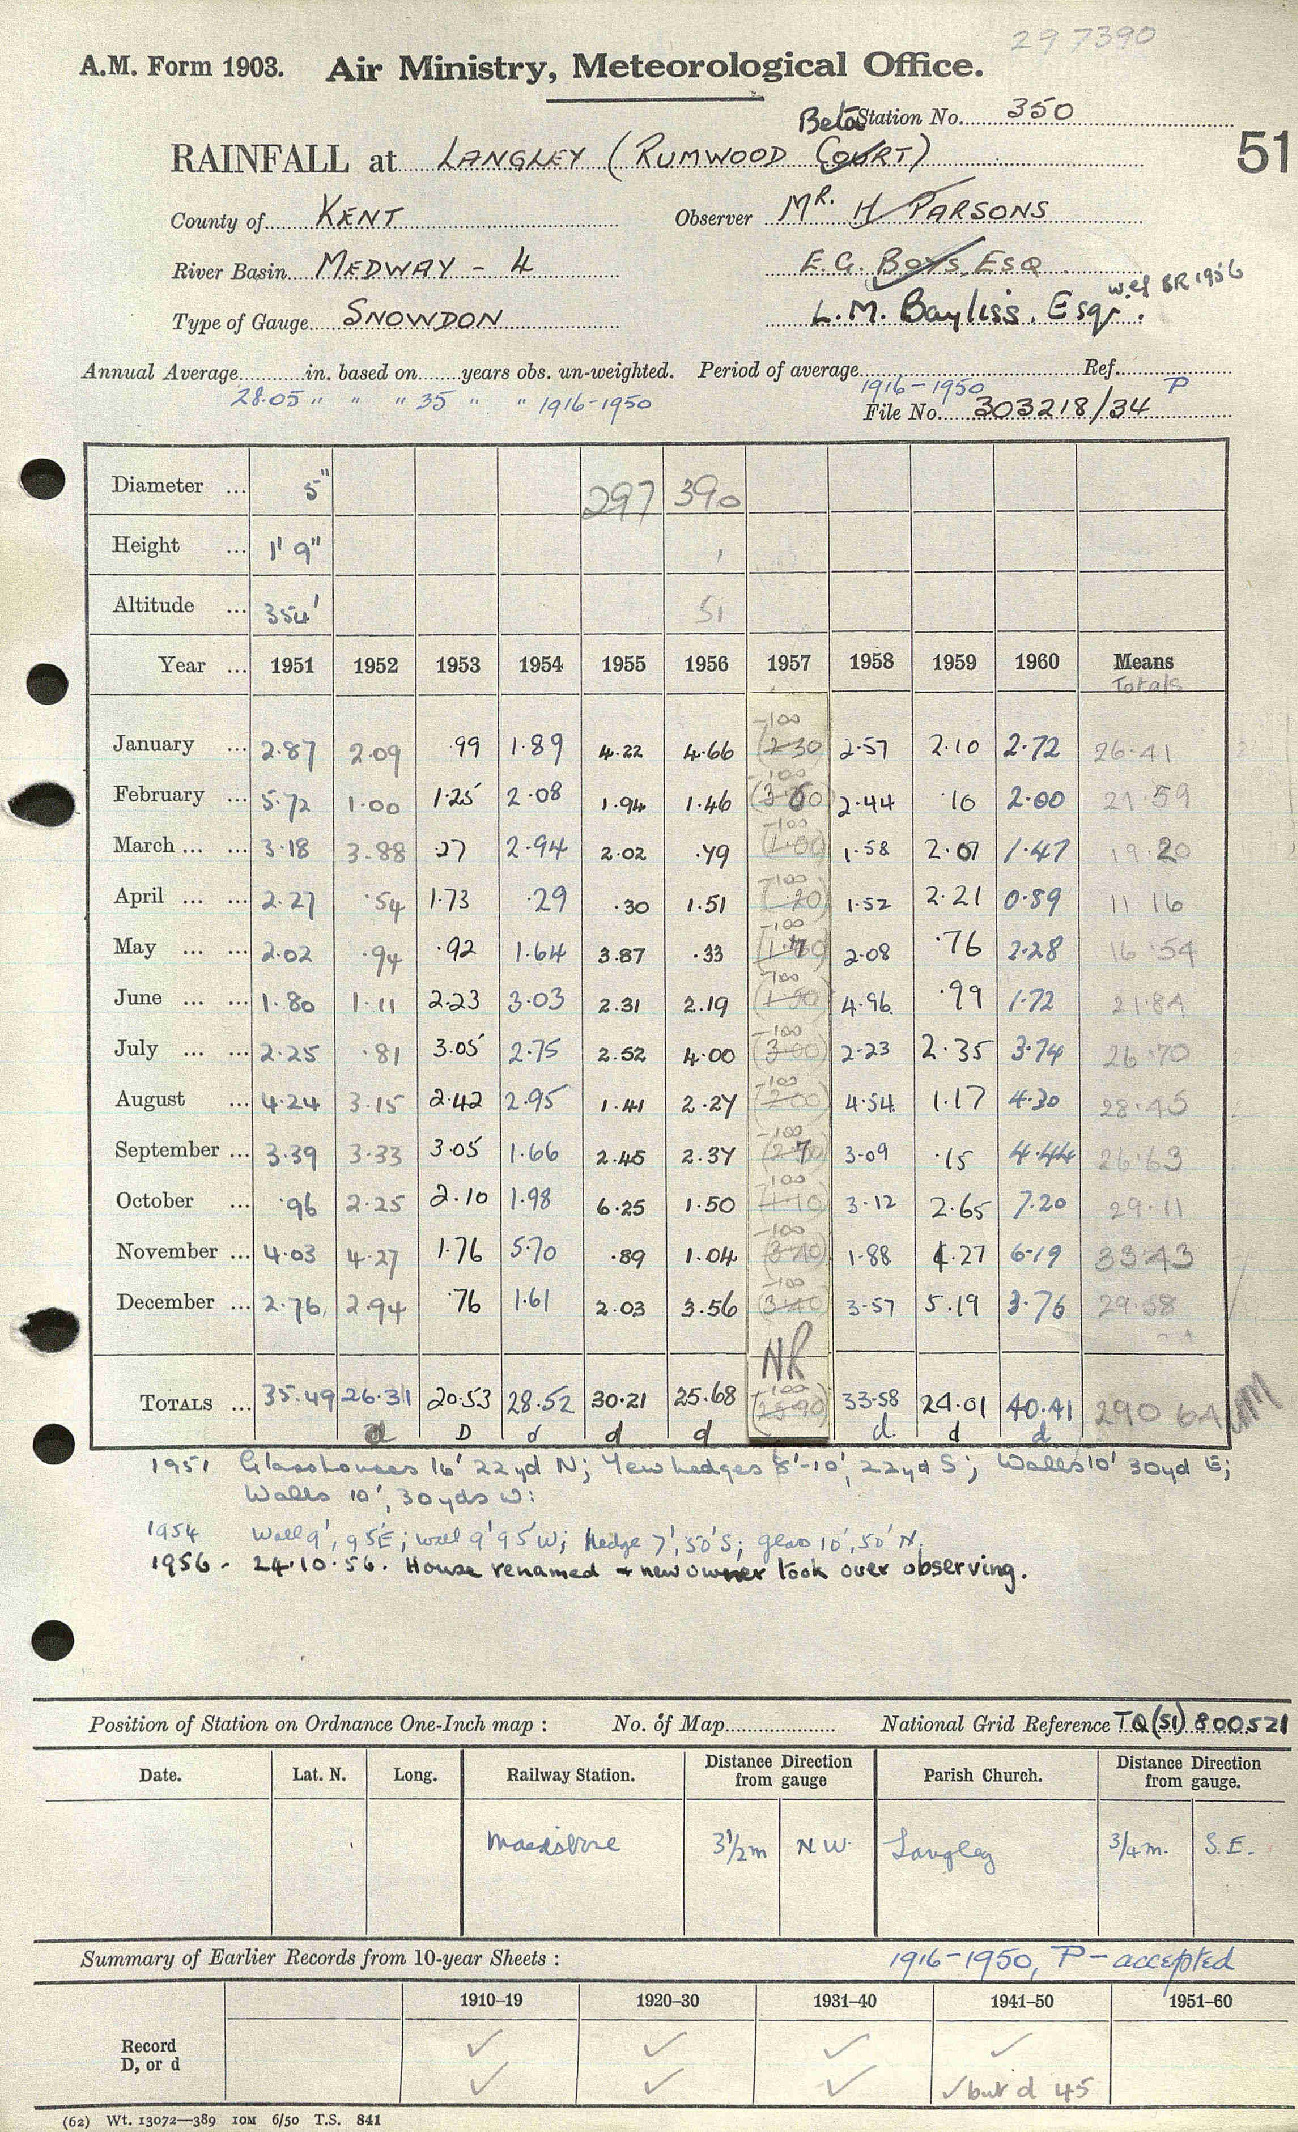 297390
A.M. Form 1903. Air Ministry, Meteorological Office.
Beta Station No. 350
51
RAINFALL at LANGLEY (RUMWOOD COURT)
County of KENT Observer MR. H PARSONS
River Basin MEDWAY - 4 E.G. BOYS, ESQ
Type of Gauge SNOWDON L.M. Bayliss, Esqr. w.ef BR 1956
Annual Average in. based on years obs. un-weighted. Period of average Ref.
28.05 " " " 35 " " 1916-1950 1916-1950 P
File No. 303218/34
Diameter ... 5" 297 390
Height ... 1' 9"
Altitude ... 354' 51
Year ... 1951 1952 1953 1954 1955 1956 1957 1958 1959 1960 Means
Totals
January ... 2.87 2.09 .99 1.89 4.22 4.66 -100 (2.30) 2.57 2.10 2.72 26.41
February ... 5.72 1.00 1.25 2.08 1.94 1.46 -100 2.44 .10 2.00 21.59
March ... ... 3.18 3.88 .27 2.94 2.02 .79 -100 (1.00) 1.58 2.07 1.47 19.20
April ... ... 2.27 .54 1.73 .29 .30 1.51 -100 ( 20) 1.52 2.21 0.89 11.16
May ... ... 2.02 .94 .92 1.64 3.87 .33 -100 2.08 .76 2.28 16.54
June ... ... 1.80 1.11 2.23 3.03 2.31 2.19 -100 4.96 .99 1.72 21.84
July ... ... 2.25 .81 3.05 2.75 2.52 4.00 -100 (3.00) 2.23 2.35 3.74 26.70
August ... 4.24 3.15 2.42 2.95 1.41 2.27 -100 (2.00) 4.54 1.17 4.30 28.45
September ... 3.39 3.33 3.05 1.66 2.45 2.37 -100 3.09 .15 4.44 26.63
October ... .96 2.25 2.10 1.98 6.25 1.50 -100 (1.10) 3.12 2.65 7.20 29.11
November ... 4.03 4.27 1.76 5.70 .89 1.04 -100 1.88 4.27 6.19 33.43
December ... 2.76 2.94 .76 1.61 2.03 3.56 -100 3.57 5.19 3.76 29.58
NR
TOTALS ... 35.49 26.31 20.53 28.52 30.21 25.68 -100 33.58 24.01 40.41 290.64
d D d d d d d d
1951 Glasshouses 16' 22yd N; Yew hedges 8'-10', 22yd S; Walls 10' 30yd E;
Walls 10', 30yds W:
1954 Wall 9', 95'E; wall 9' 95'W; Hedge 7', 50'S; glass 10', 50' N.
1956 - 24.10.56. House renamed + new owner took over observing.
Position of Station on Ordnance One-Inch map : No. of Map National Grid Reference TQ (51) 800521
Date. Lat. N. Long. Railway Station. Distance Direction from gauge Parish Church. Distance Direction from gauge.
Maidstone 3 1/2 m N W. Langley 3/4 m. S. E.
Summary of Earlier Records from 10-year Sheets : 1916-1950, P - accepted
1910-19 1920-30 1931-40 1941-50 1951-60
Record ✓ ✓ ✓ ✓
D, or d ✓ ✓ ✓ ✓ but d 45
(62) Wt. 13072—389 10M 6/50 T.S. 841